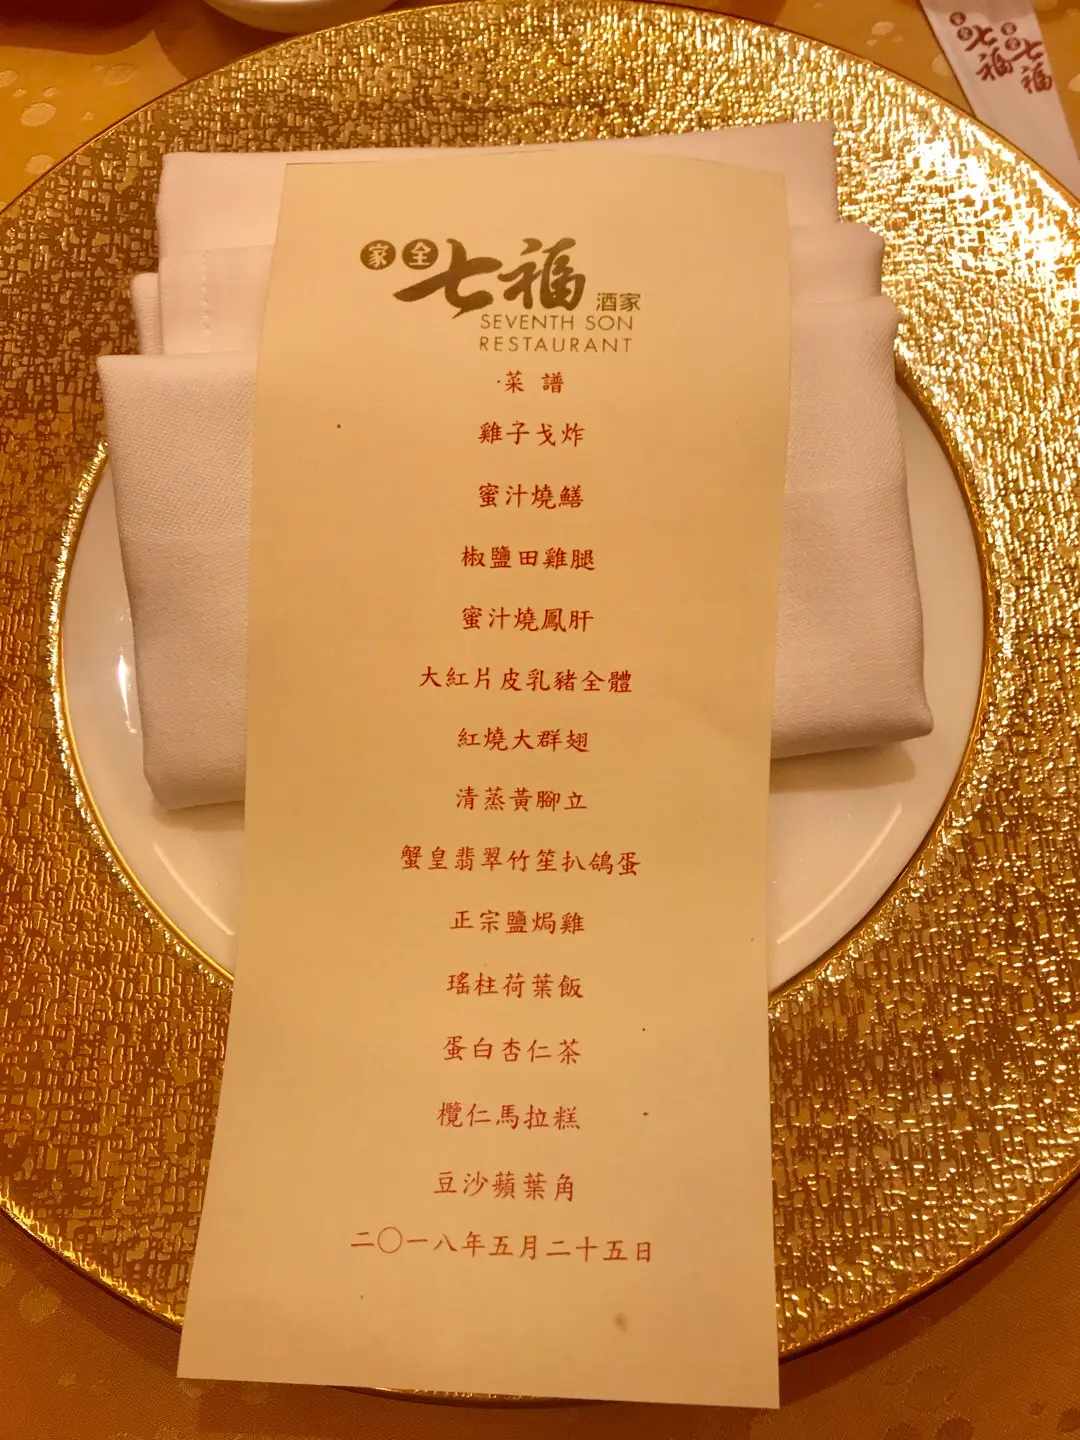 家全七福酒家
SEVENTH SON
RESTAURANT
·菜 譜
雞子戈炸
蜜汁燒鱔
椒鹽田雞腿
蜜汁燒鳳肝
大紅片皮乳豬全體
紅燒大群翅
清蒸黃腳立
蟹皇翡翠竹笙扒鴿蛋
正宗鹽焗雞
瑤柱荷葉飯
蛋白杏仁茶
欖仁馬拉糕
豆沙蘋葉角
二〇一八年五月二十五日
家全七福
家全七福